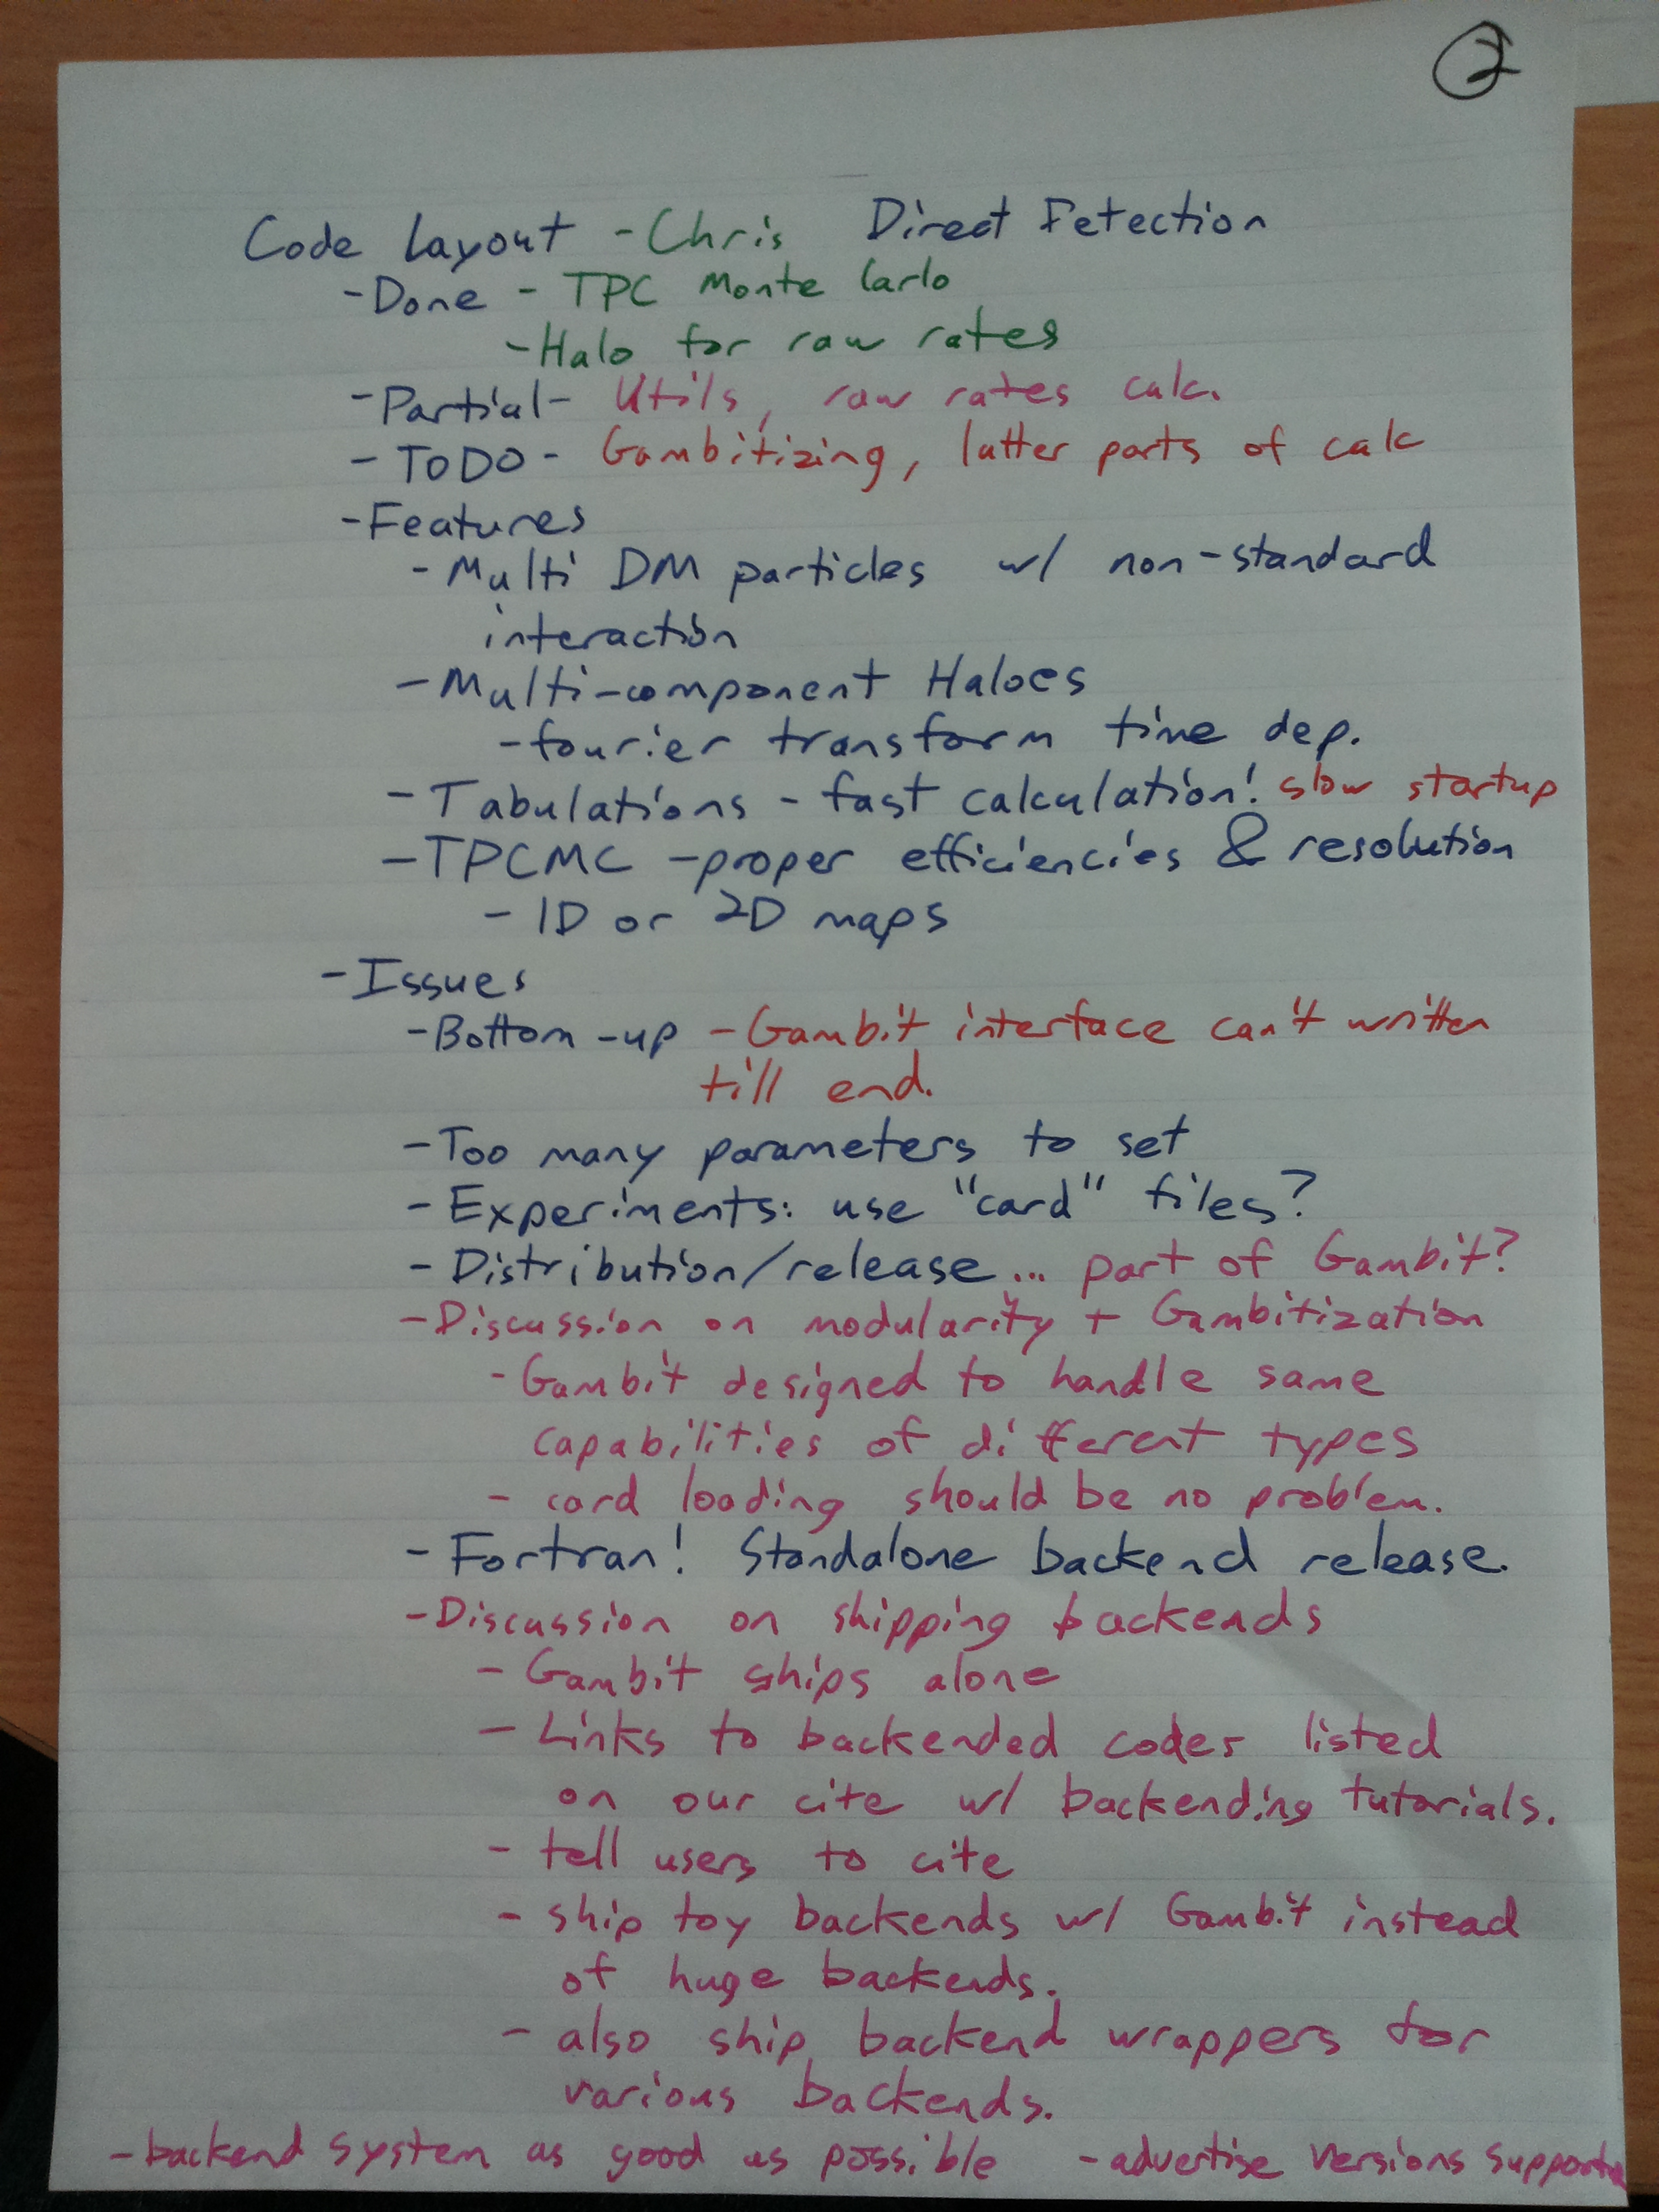 2
Code Layout - Chris Direct Fetection
- Done - TPC Monte Carlo
- Halo for raw rates
- Partial - Utils, raw rates calc.
- TODO - Gambitizing, latter parts of calc
- Features
- Multi DM particles w/ non-standard
interaction
- Multi-component Haloes
- fourier transform time dep.
- Tabulations - fast calculation! slow startup
- TPCMC - proper efficiencies & resolution
- 1D or 2D maps
- Issues
- Bottom-up - Gambit interface can't written
till end.
- Too many parameters to set
- Experiments: use "card" files?
- Distribution/release... part of Gambit?
- Discussion on modularity + Gambitization
- Gambit designed to handle same
capabilities of different types
- card loading should be no problem.
- Fortran! Standalone backend release.
- Discussion on shipping backends
- Gambit ships alone
- Links to backended codes listed
on our cite w/ backending tutorials.
- tell users to cite
- ship toy backends w/ Gambit instead
of huge backends.
- also ship backend wrappers for
various backends.
- backend system as good as possible - advertise versions supported